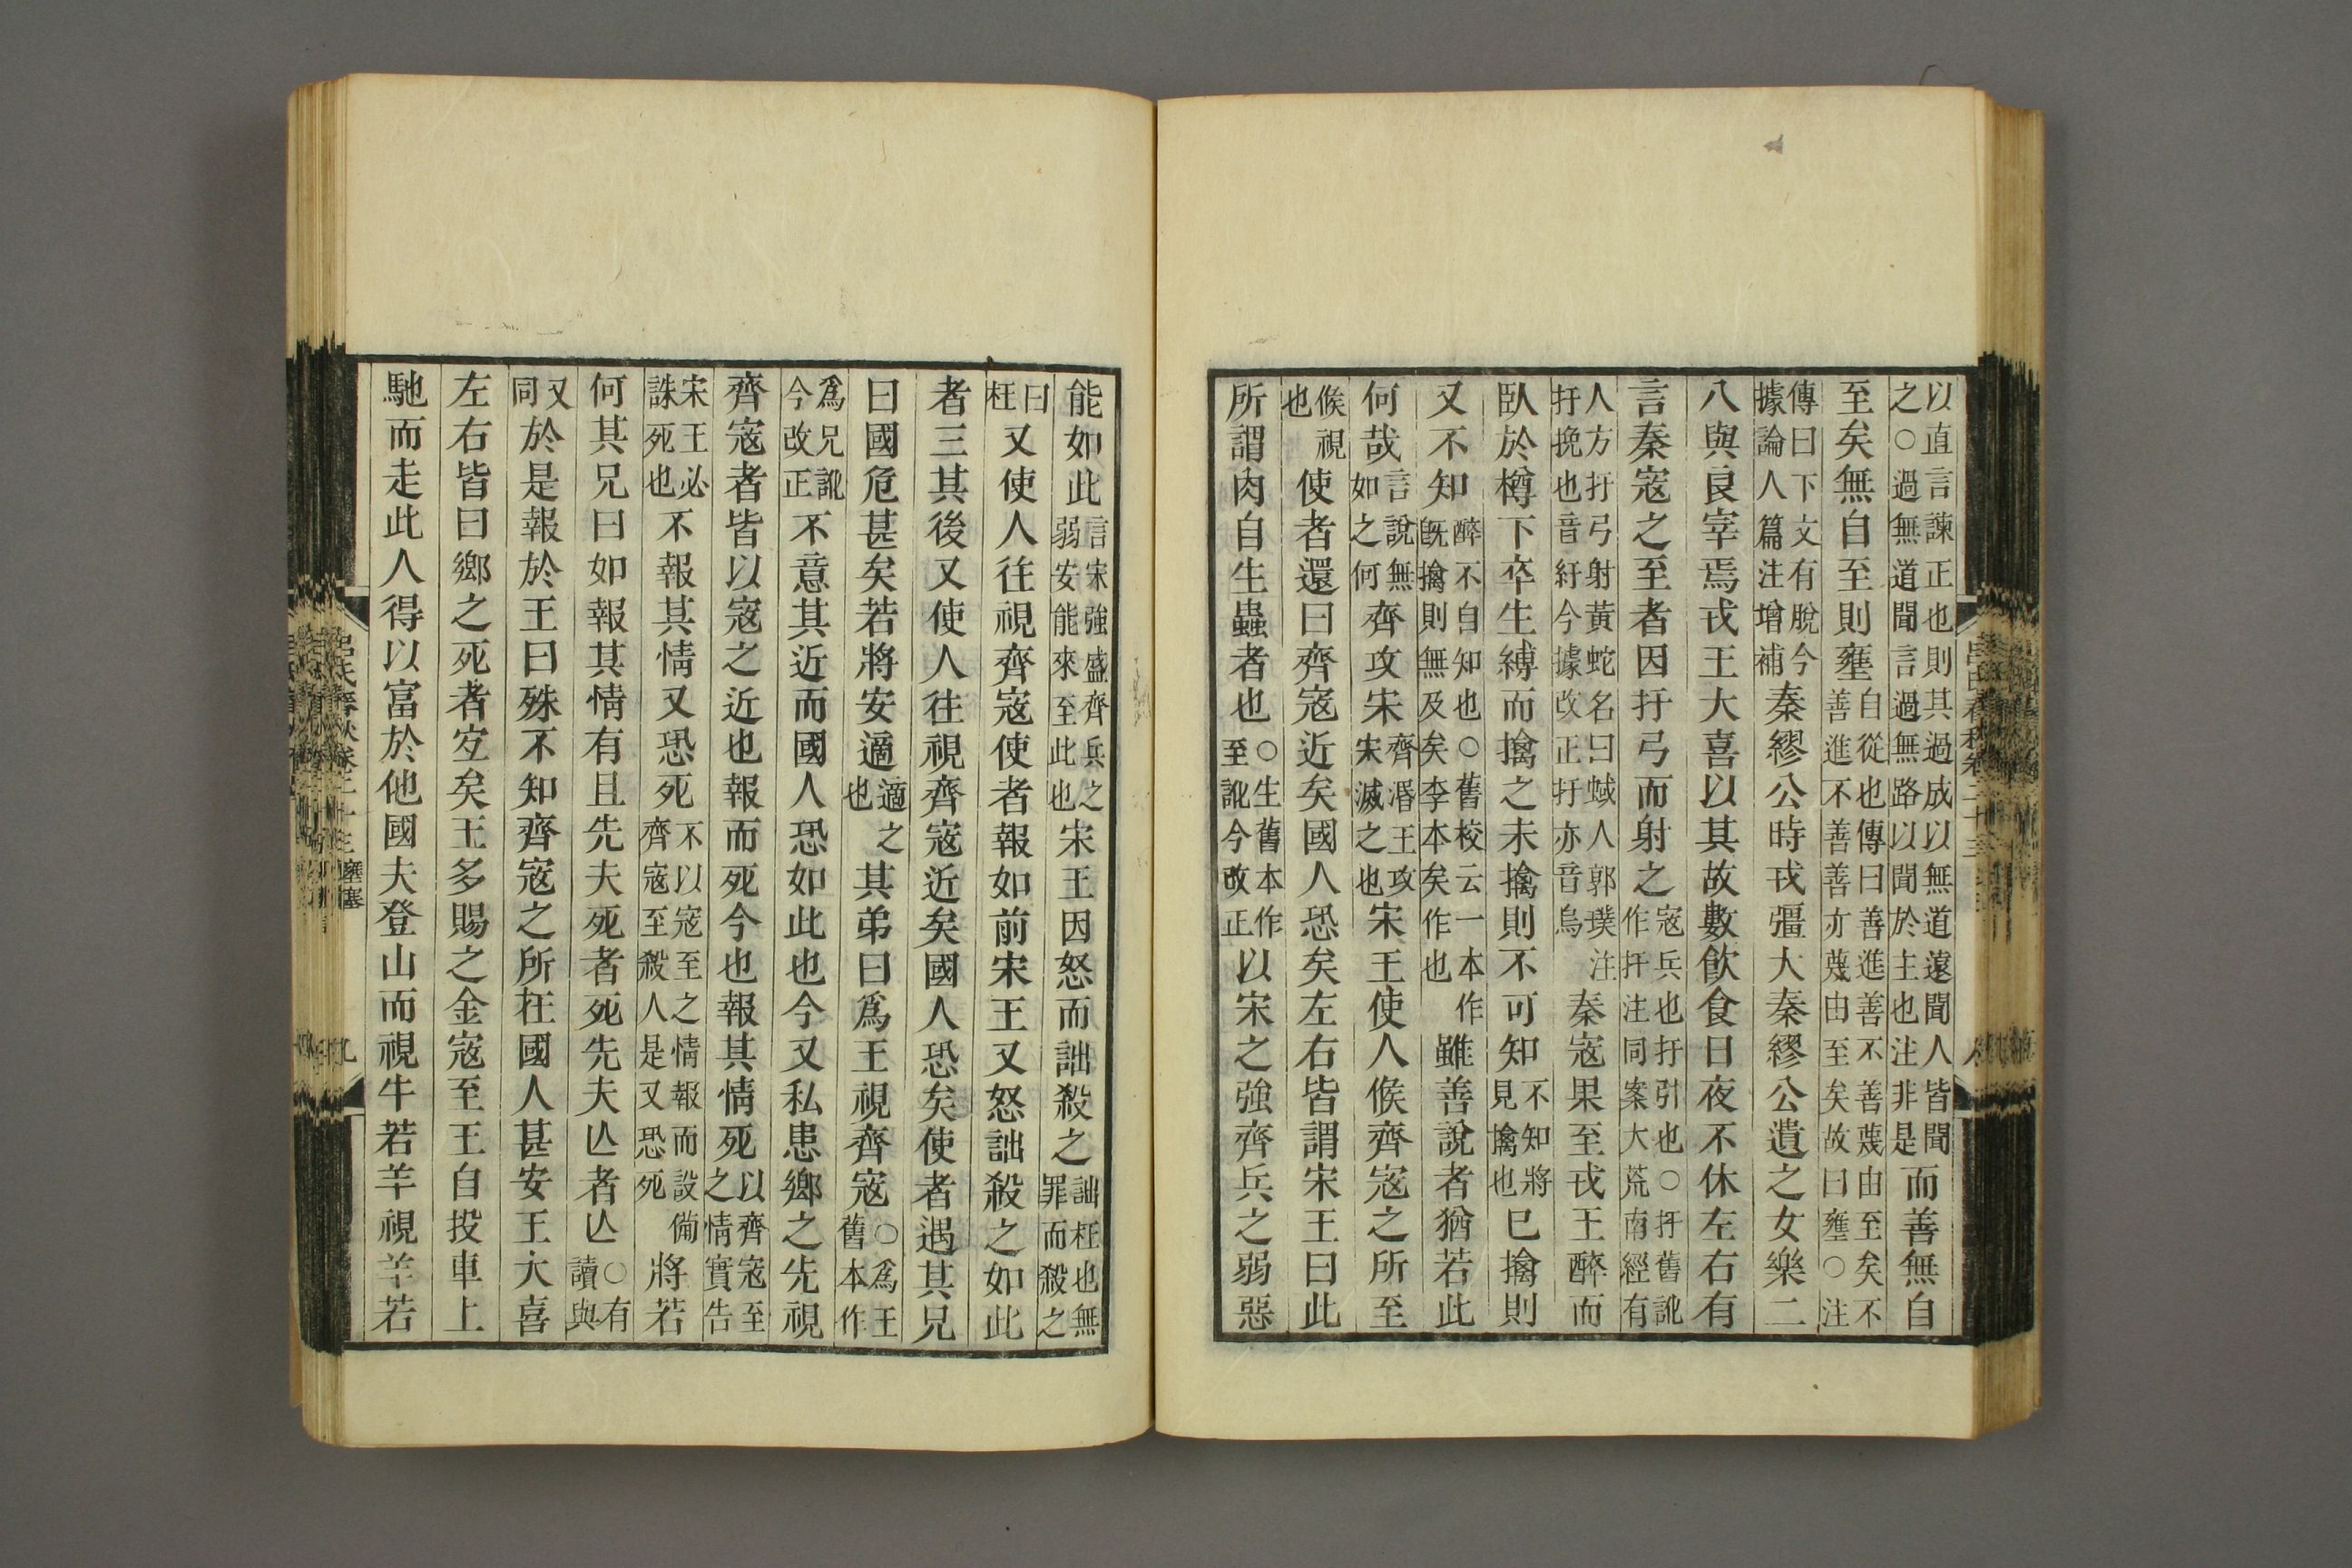 以直言諫正也則其過成以無道遠聞人皆聞之○過無道聞言過無路以聞於主也注非是而善無自
至矣無自至則壅自從也傳曰善進善不善蔑由至矣不善進不善善亦蔑由至矣故曰壅○注
傳曰下文有脫今據論人篇注增補秦繆公時戎彊大秦繆公遺之女樂二
八與良宰焉戎王大喜以其故數飲食日夜不休左右有
言秦寇之至者因扜弓而射之寇兵也扜引也○扜舊訛作扞注同案大荒南經有
人方扜弓射黃蛇名曰蜮人郭璞注扜挽也音紆今據改正扜亦音烏秦寇果至戎王醉而
臥於樽下卒生縛而擒之未擒則不可知不知將見擒也已擒則
又不知醉不自知也○舊校云一本作既擒則無及矣李本矣作也雖善說者猶若此
何哉言說無如之何齊攻宋齊湣王攻宋滅之也宋王使人候齊寇之所至
候視也使者還曰齊寇近矣國人恐矣左右皆謂宋王曰此
所謂肉自生蟲者也○生舊本作至訛今改正以宋之強齊兵之弱惡
能如此言宋強盛齊兵之弱安能來至此也宋王因怒而詘殺之詘枉也無罪而殺之
曰枉又使人往視齊寇使者報如前宋王又怒詘殺之如此
者三其後又使人往視齊寇近矣國人恐矣使者遇其兄
曰國危甚矣若將安適適之也其弟曰爲王視齊寇○爲王舊本作
爲兄訛今改正不意其近而國人恐如此也今又私患鄉之先視
齊寇者皆以寇之近也報而死今也報其情死以齊寇至之情實告
宋王必誅死也不報其情又恐死不以寇至之情報而設備齊寇至殺人是又恐死將若
何其兄曰如報其情有且先夫死者死先夫亾者亾○有讀與
又同於是報於王曰殊不知齊寇之所在國人甚安王大喜
左右皆曰鄉之死者宜矣王多賜之金寇至王自投車上
馳而走此人得以富於他國夫登山而視牛若羊視羊若
呂氏春秋卷二十三 壅塞
九